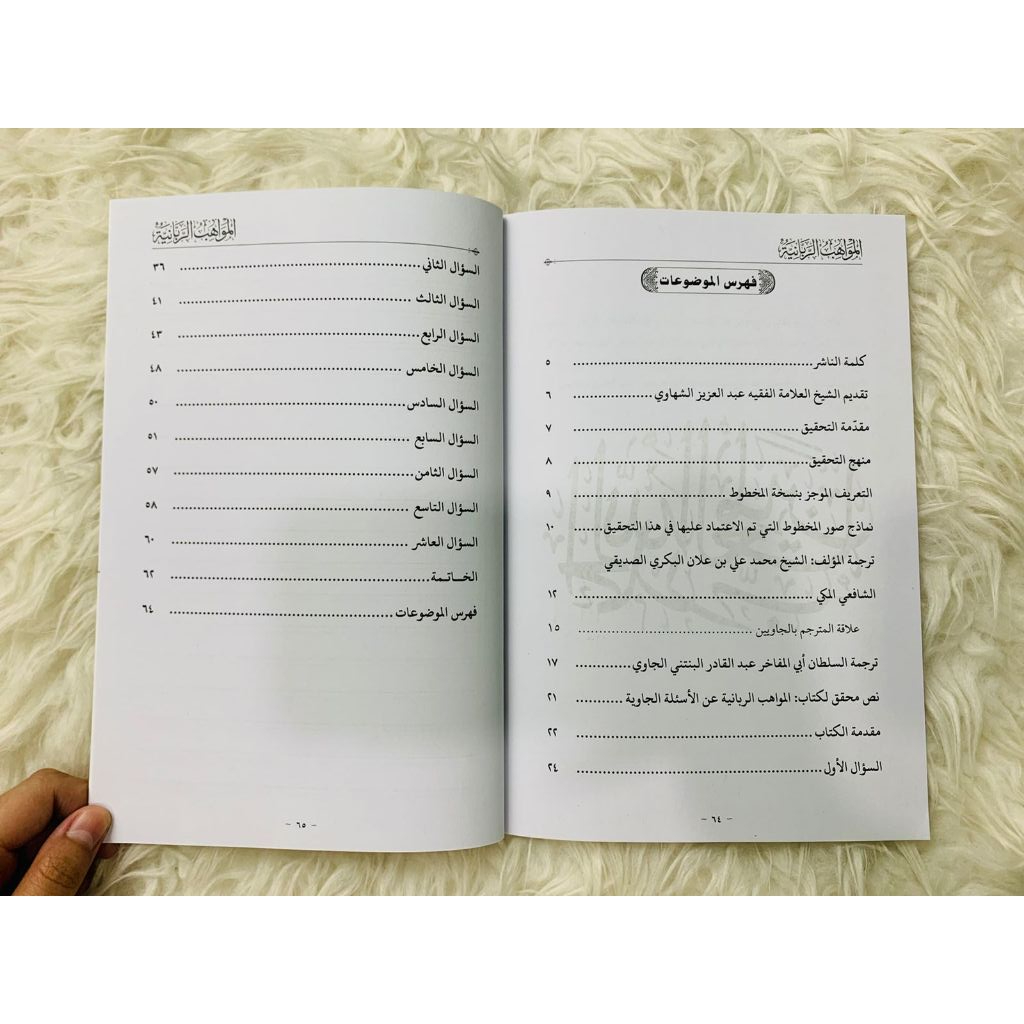 المواهب الربانية
فهرس الموضوعات
كلمة الناشر ........ ٥
تقديم الشيخ العلامة الفقيه عبد العزيز الشهاوي ........ ٦
مقدّمة التحقيق ........ ٧
منهج التحقيق ........ ٨
التعريف الموجز بنسخة المخطوط ........ ٩
نماذج صور المخطوط التي تم الاعتماد عليها في هذا التحقيق ........ ١٠
ترجمة المؤلف: الشيخ محمد علي بن علان البكري الصديقي
الشافعي المكي ........ ١٢
علاقة المترجم بالجاويين ........ ١٥
ترجمة السلطان أبي المفاخر عبد القادر البنتني الجاوي ........ ١٧
نص محقق لكتاب: المواهب الربانية عن الأسئلة الجاوية ........ ٢١
مقدمة الكتاب ........ ٢٢
السؤال الأول ........ ٢٤
- ٦٤ -
المواهب الربانية
السؤال الثاني ........ ٣٦
السؤال الثالث ........ ٤١
السؤال الرابع ........ ٤٣
السؤال الخامس ........ ٤٨
السؤال السادس ........ ٥٠
السؤال السابع ........ ٥١
السؤال الثامن ........ ٥٧
السؤال التاسع ........ ٥٨
السؤال العاشر ........ ٦٠
الخـــاتـمة ........ ٦٢
فهرس الموضوعات ........ ٦٤
- ٦٥ -